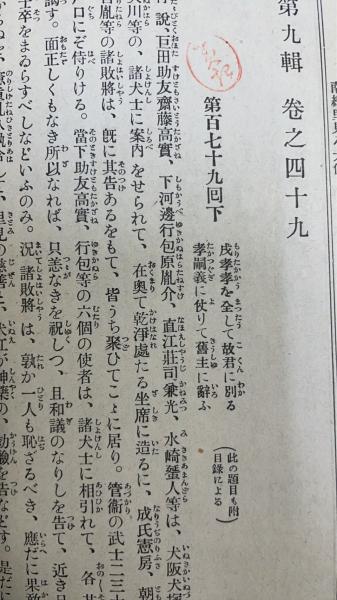 第九輯 卷之四十九
戌孝孝を全して故君に別る
孝嗣義に仗りて舊主に辭ふ
(此の題目も附
目錄による)
第百七十九囘下
說、巨田助友齋藤高實、下河邊行包原胤介、直江莊司兼光、水崎蜑人等は、犬阪犬塚
川等の、諸犬士に案內をせられて、在奧て乾淨處たる坐席に造るに、成氏憲房、朝
胤等の諸敗將は、旣に其告あるをもて、皆うち聚ひてこゝに居り。管衞の武士二三十
戶口にぞ侍りける。當下助友高實、行包等の六個の使者は、諸犬士に相引れて、各其
謁す。面正しくもなき所以なれば、只恙なきを祝しつ、且和議のなりしを告て、近き日
士卒をまゐらすべしなどいふのみ。況諸敗將は、孰か一人も恥ざるべき、應だに果敢
里見の慈善と、犬江が神藥の、効驗を告などす。是だに